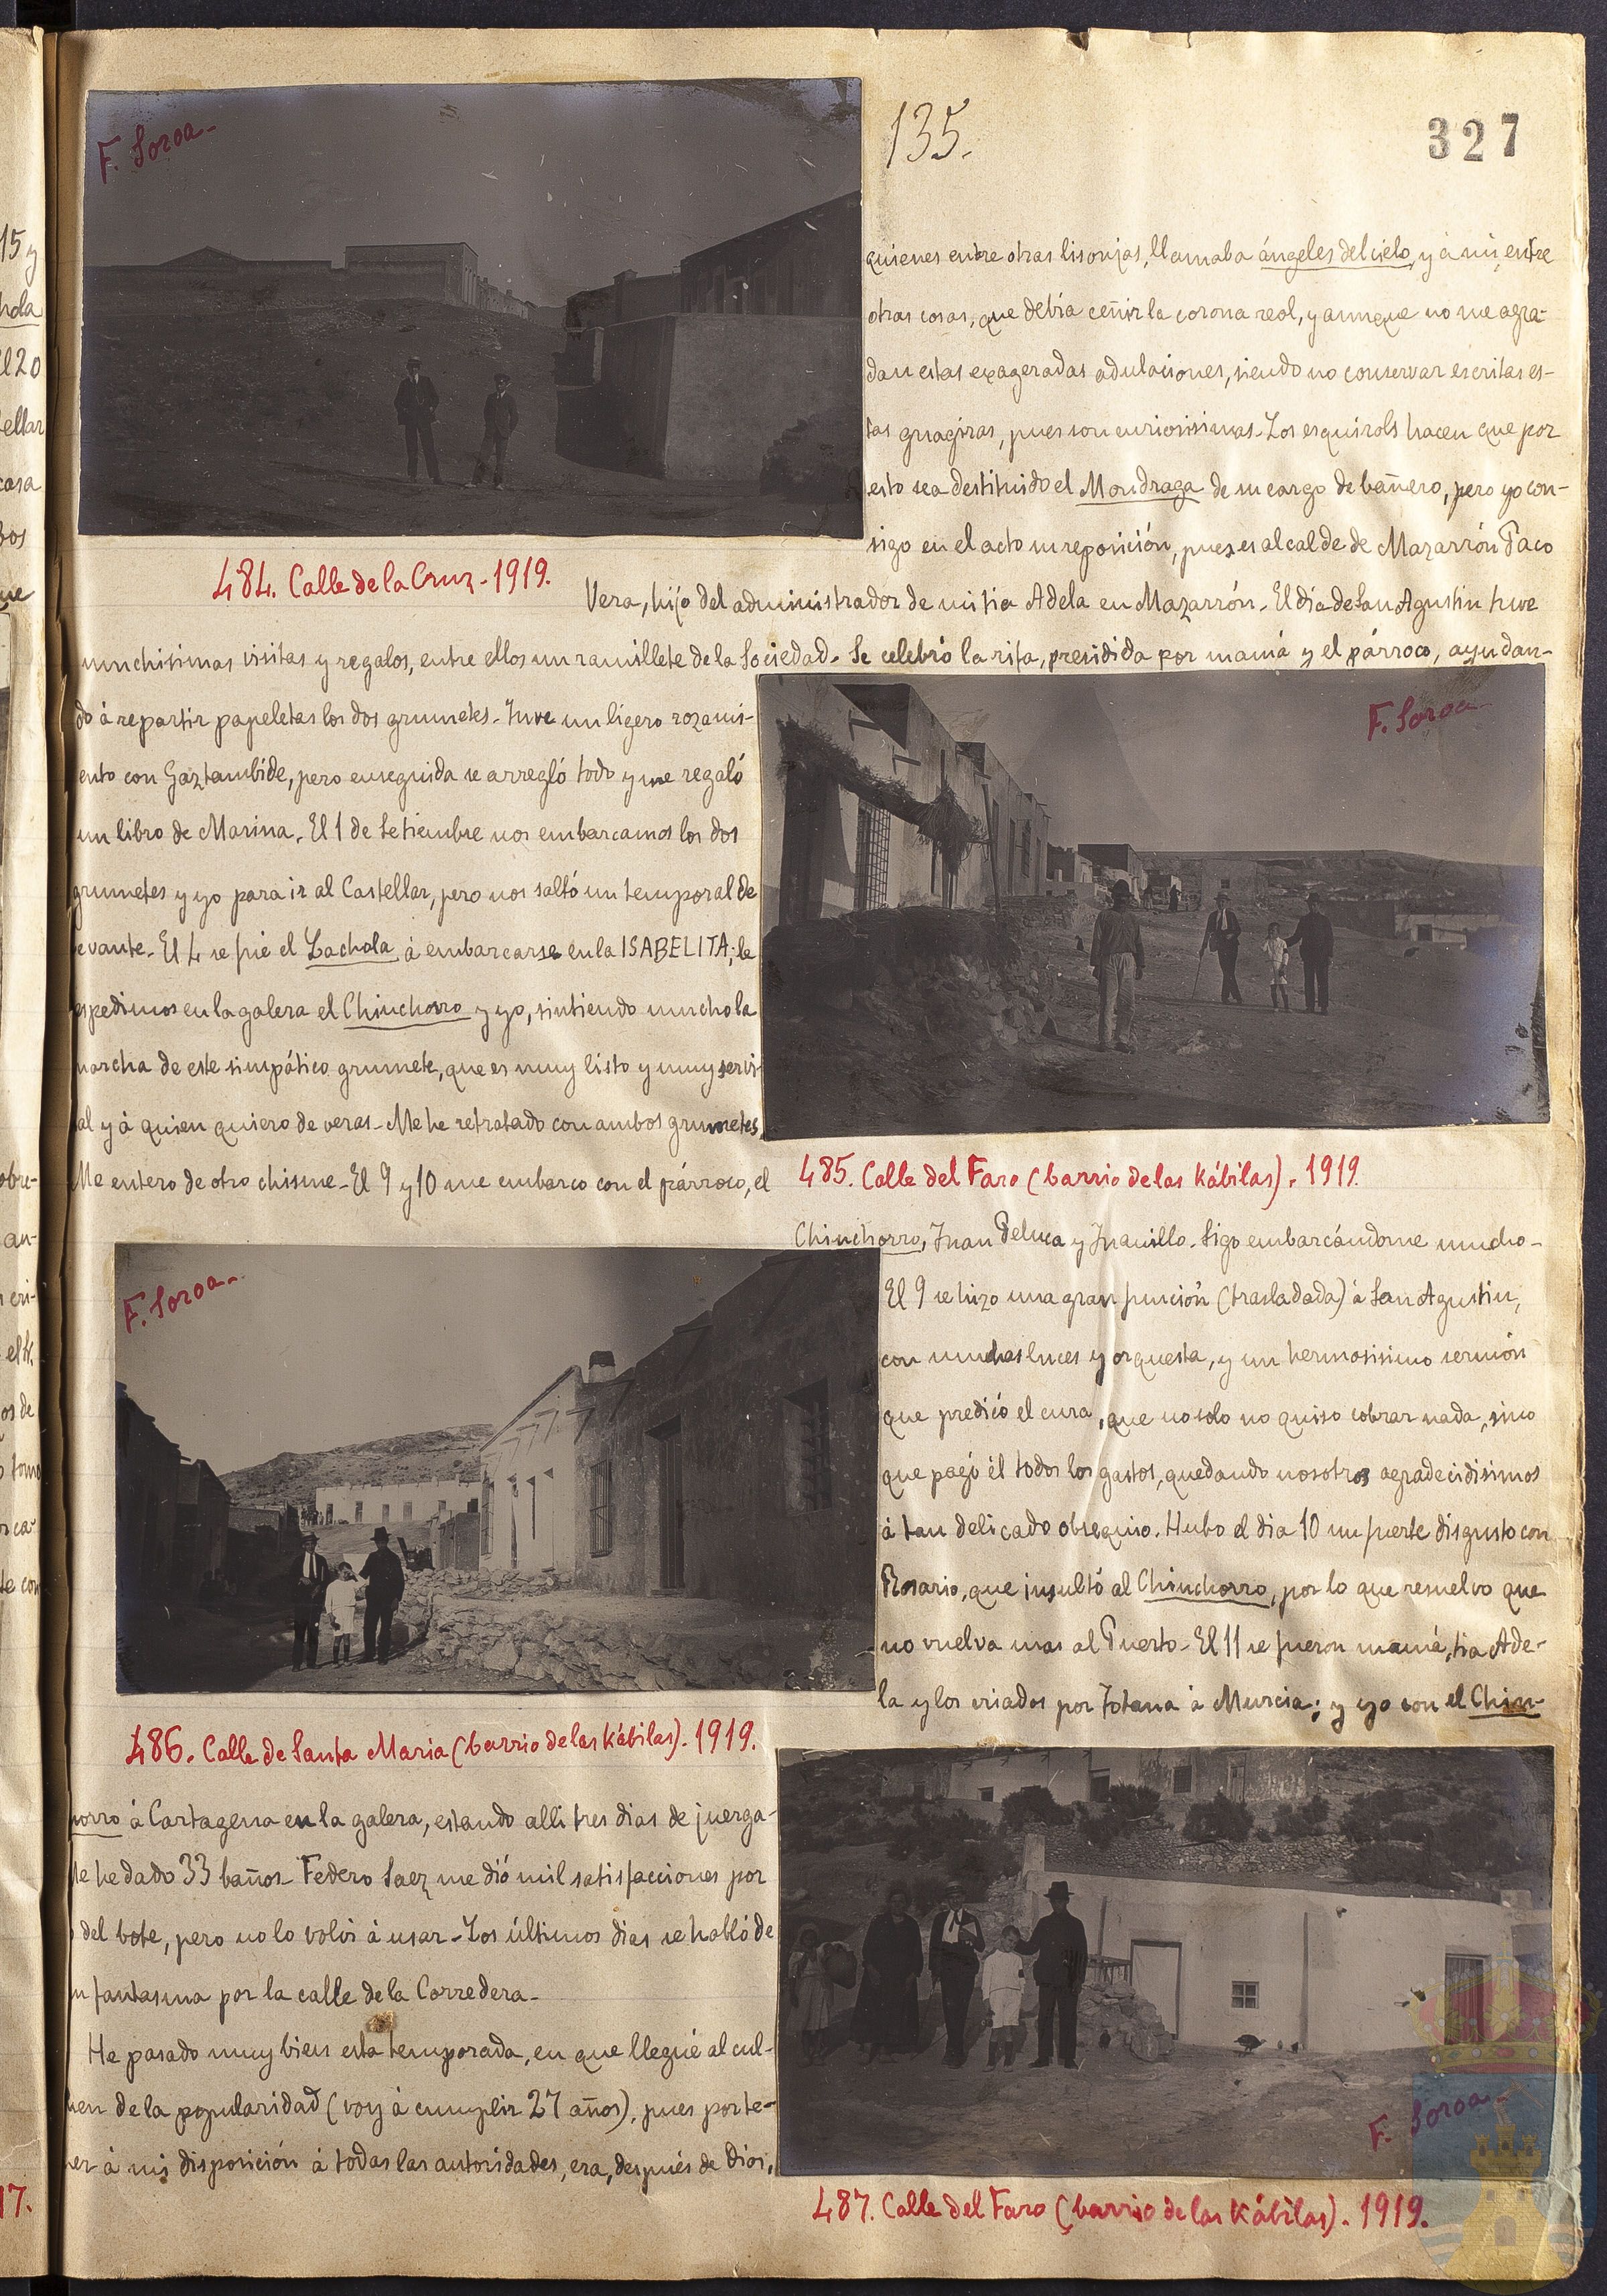 135.
327
F. Soroa-
quienes entre otras lisonjas, llamaba ángeles del cielo, y à mi, entre
otras cosas, que debía ceñir la corona real, y aunque no me agra-
dan estas exageradas adulaciones, siendo no conservar escritas es-
tas guagiras, pues son curiosisimas-Los esquirols hacen que por
esto sea destituido el Moudraga de su cargo de bañero, pero yo con-
sigo en el acto su reposición, pues es alcalde de Mazarrón Paco
484. Calle de la Cruz-1919.
Vera, hijo del administrador de mi tia Adela en Mazarrón-El dia de San Agustin tuve
muchisimas visitas y regalos, entre ellos un ramillete de la Sociedad-Se celebró la rifa, presidida por mamá y el párroco, ayudan-
do à repartir papeletas los dos grumetes-Tuve un ligero rozami-
ento con Gaztambide, pero enseguida se arregló todo y me regaló
un libro de Marina. El 1 de Setiembre nos embarcamos los dos
grumetes y yo para ir al Castellar, pero nos saltó un temporal de
evante-El 4 se fué el Lachola à embarcarse en la ISABELITA; le
espedimos en la galera el Chinchorro y yo, sintiendo mucho la
marcha de este simpático grumete, que es muy listo y muy servi-
al y à quien quiero de veras-Me he retratado con ambos grumetes,
Me entero de otro chisme-El 9 y 10 me embarco con el párroco, el
F. Soroa-
485. Calle del Faro (barrio de las Kábilas). 1919.
Chinchorro, Juan Peluca y Juanillo. Sigo embarcándome mucho-
El 9 se hizo una gran función (trasladada) à San Agustin,
con muchas luces y orquesta, y un hermosisimo sermón
que predicó el cura, que no solo no quiso cobrar nada, sino
que pagó él todos los gastos, quedando nosotros agradecidisimos
à tan delicado obsequio. Hubo el dia 10 un fuerte disgusto con
Rosario, que insultó al Chinchorro, por lo que resuelvo que
no vuelva mas al Puerto-El 11 se fueron mamá, tia Ade-
la y los criados por Totana à Murcia; y yo con el Chin-
F. Soroa-
486. Calle de Santa Maria (barrio de las Kábilas). 1919.
horro à Cartagena en la galera, estando alli tres dias de juerga-
Me he dado 33 baños-Federo Saez me dió mil satisfacciones por
del bote, pero no lo volvi à usar-Los últimos dias se habló de
un fantasma por la calle de la Corredera-
He pasado muy bien esta temporada, en que llegué al cul-
men de la popularidad (voy à cumplir 27 años), pues por te-
ner à mi disposición à todas las autoridades, era, después de Dios,
F. Soroa-
487. Calle del Faro (barrio de las Kábilas). 1919.